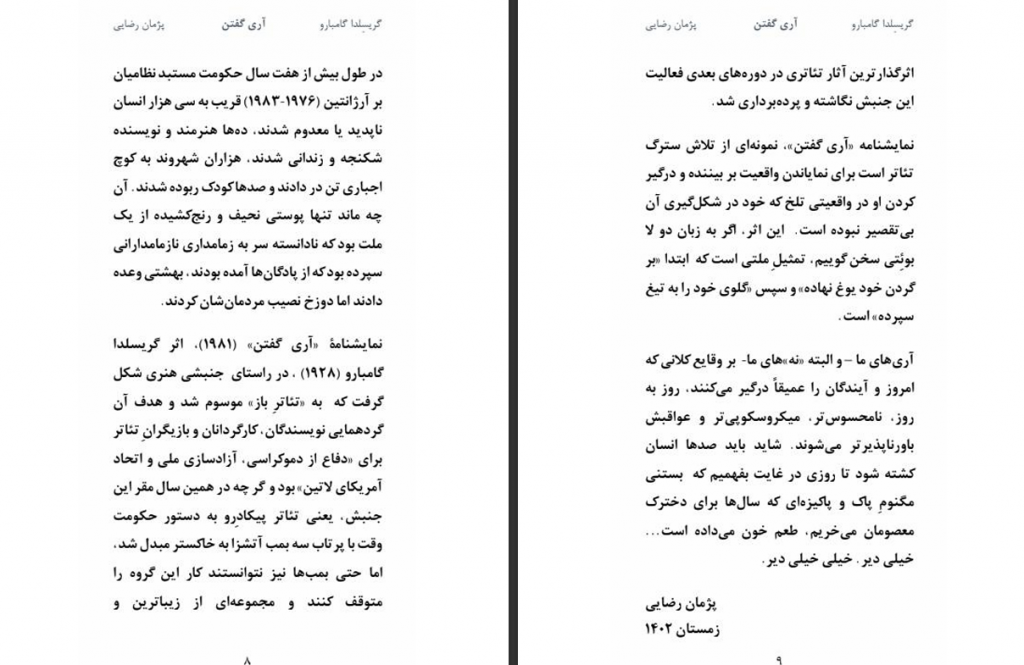 گریسلدا گامبارو آری گفتن پژمان رضایی
در طول بیش از هفت سال حکومت مستبد نظامیان
بر آرژانتین (۱۹۷۶-۱۹۸۳) قریب به سی هزار انسان
ناپدید یا معدوم شدند، ده‌ها هنرمند و نویسنده
شکنجه و زندانی شدند، هزاران شهروند به کوچ
اجباری تن در دادند و صدها کودک ربوده شدند. آن
چه ماند تنها پوستی نحیف و رنج‌کشیده از یک
ملت بود که نادانسته سر به زمامداری نازمامدارانی
سپرده بود که از پادگان‌ها آمده بودند، بهشتی وعده
دادند اما دوزخ نصیب مردمان‌شان کردند.
نمایشنامهٔ «آری گفتن» (۱۹۸۱)، اثر گریسلدا
گامبارو (۱۹۲۸) ، در راستای جنبشی هنری شکل
گرفت که به «تئاترِ باز» موسوم شد و هدف آن
گردهمایی نویسندگان، کارگردانان و بازیگرانِ تئاتر
برای «دفاع از دموکراسی، آزادسازی ملی و اتحاد
آمریکای لاتین» بود و گر چه در همین سال مقر این
جنبش، یعنی تئاتر پیکادِرو به دستور حکومت
وقت با پرتاب سه بمب آتشزا به خاکستر مبدل شد،
اما حتی بمب‌ها نیز نتوانستند کار این گروه را
متوقف کنند و مجموعه‌ای از زیباترین و
۸
گریسلدا گامبارو آری گفتن پژمان رضایی
اثرگذارترین آثار تئاتری در دوره‌های بعدی فعالیت
این جنبش نگاشته و پرده‌برداری شد.
نمایشنامه «آری گفتن»، نمونه‌ای از تلاش سترگ
تئاتر است برای نمایاندن واقعیت بر بیننده و درگیر
کردن او در واقعیتی تلخ که خود در شکل‌گیری آن
بی‌تقصیر نبوده است. این اثر، اگر به زبان دو لا
بوئِتی سخن گوییم، تمثیلِ ملتی است که ابتدا «بر
گردن خود یوغ نهاده» و سپس «گلوی خود را به تیغ
سپرده» است.
آری‌های ما –و البته «نه»های ما- بر وقایع کلانی که
امروز و آیندگان را عمیقاً درگیر می‌کنند، روز به
روز، نامحسوس‌تر، میکروسکوپی‌تر و عواقبش
باورناپذیرتر می‌شوند. شاید باید صدها انسان
کشته شود تا روزی در غایت بفهمیم که بستنی
مگنومِ پاک و پاکیزه‌ای که سال‌ها برای دخترک
معصومان می‌خریم، طعم خون می‌داده است...
خیلی دیر. خیلی خیلی دیر.
پژمان رضایی
زمستان ۱۴۰۲
۹